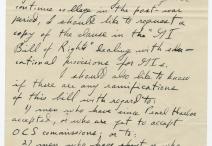 continue college in the post-war
period, I should like to request a
copy of the clause in the "GI
Bill of Rights" dealing with edu-
cational provisions for GIs.
I should also like to know
if there are any ramifications
of this bill with regard to:
1) men who have since Pearl Harbor
accepted, or who are yet to accept
OCS commissions; or to:
2) men who have